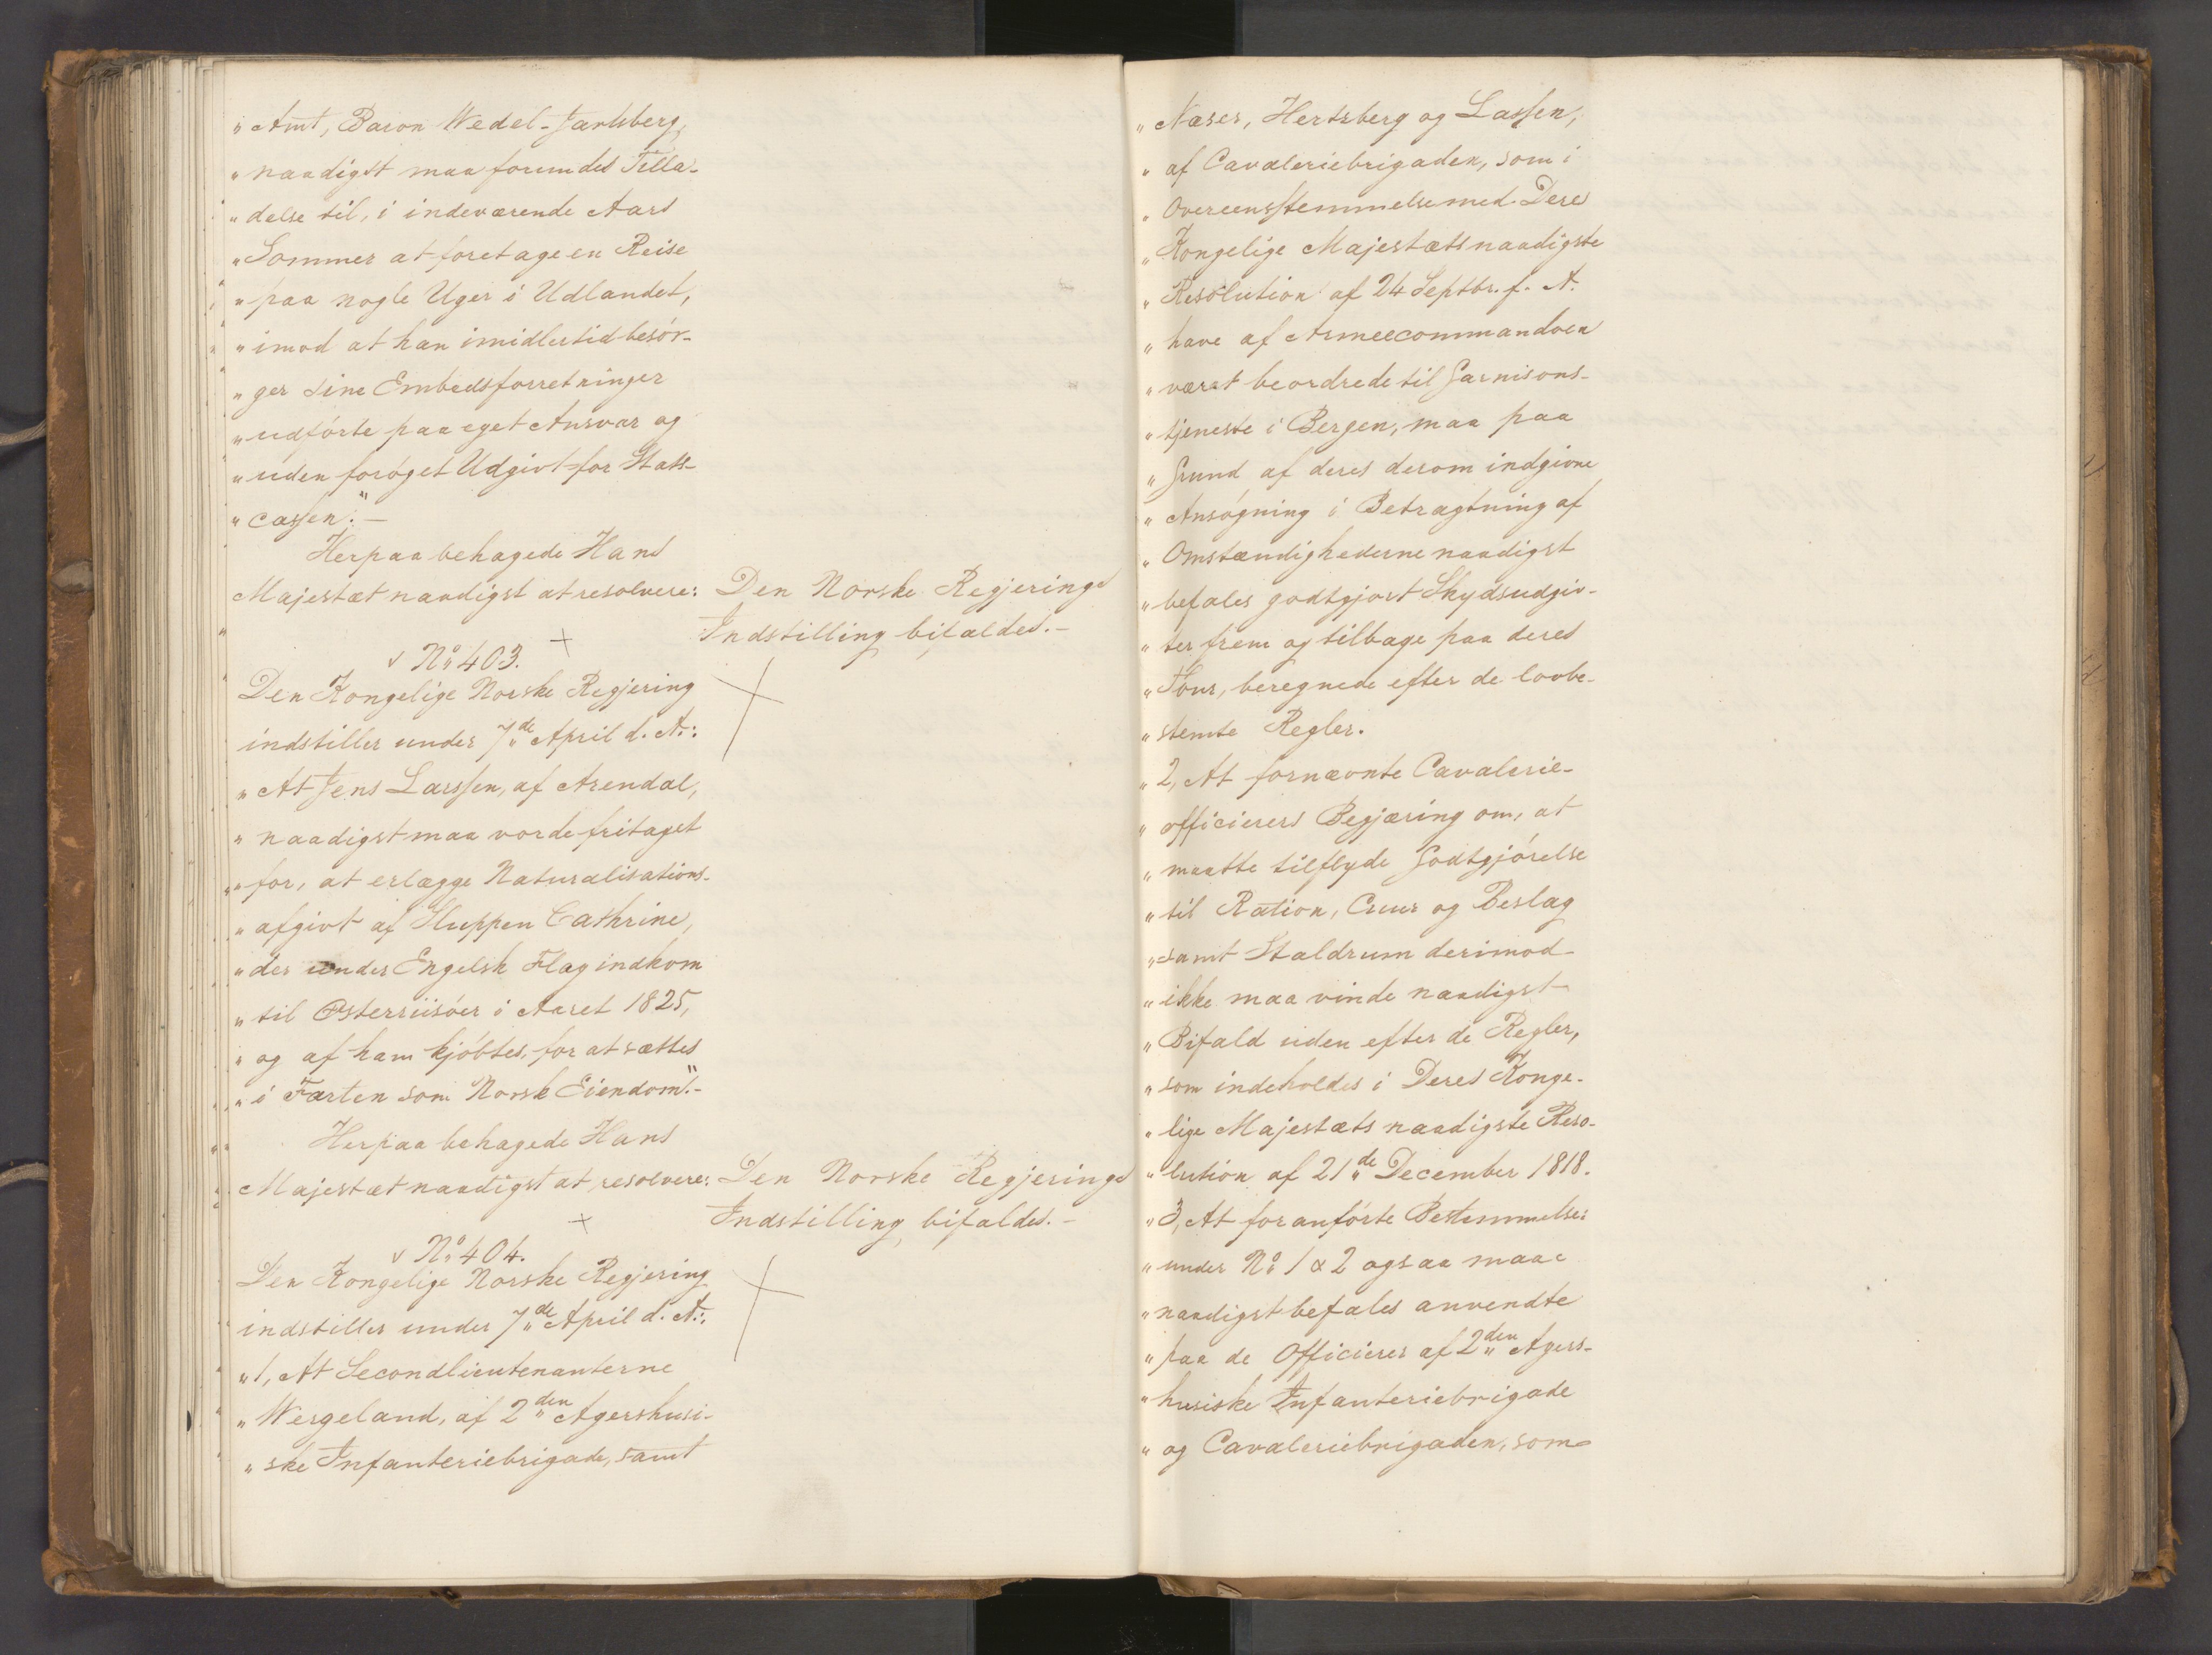 „Amt, Baron Wedel-Jarlsberg,
„naadigst maa forundes Tilla-
„delse til, i indeværende Aars
„Sommer at foretage en Reise
„paa nogle Uger i Udlandet,
„imod at han imidlertid besór-
„ger sine Embedsforretninger
„udfórte paa eget Ansvar og
„uden foróget Udgivt for Stats-
„cassen“.-
Herpaa behagede Hans
Majestæt naadigst at resolvere:
Den Norske Regjerings
Indstilling bifaldes.-
No 403.
Den Kongelige Norske Regjering
indstiller under 7de April d. A.:
„At Jens Larssen, af Arendal,
„naadigst maa vorde fritaget
„for, at erlægge Naturalisations-
„afgivt af Sluppen Cathrine,
„der under Engelsk Flag indkom
„til Østerriisöer i Aaret 1825,
„og af ham kjóbtes, for at sættes
„i Farten som Norsk Eiendom“.-
Herpaa behagede Hans
Majestæt naadigst at resolvere:
Den Norske Regjerings
Indstilling bifaldes.-
No 404.
Den Kongelige Norske Regjering
indstiller under 7de April d. A.:
„1, At Secondlieutenanterne
„Wergeland, af 2den Agershusi-
„ske Infanteriebrigade, samt
„Næser, Hertzberg og Lassen,
„af Cavaleriebrigaden, som i
„Overeensstemmelse med Deres
„Kongelige Majestæts naadigste
„Resolution af 24 Septbr. f. A.
„have af Armeecommandoen
„været beordrede til Garnisons-
„tjeneste i Bergen, maa paa
„Grund af deres derom indgivne
„Ansógning i Betragtning af
„Omstændighederne naadigst
„befales godtgjort Skydsudgiv-
„ter frem og tilbage paa deres
„Tour, beregnede efter de lovbe-
„stemte Regler.
„2, At fornævnte Cavalerie-
„officierers Begjæring om, at
„maatte tilflyde Godtgjórelse
„til Ration, Cuur og Beslag
„samt Staldrum derimod
„ikke maa vinde naadigst
„Bifald uden efter de Regler,
„som indeholdes i Deres Konge-
„lige Majestæts naadigste Reso-
„lution af 21de December 1818.
„3, At foranfórte Bestemmelser
„under No 1 & 2 ogsaa maae
„naadigst befales anvendte
„paa de Officierer af 2den Agers-
„husiske Infanteriebrigade
„og Cavaleriebrigaden, som